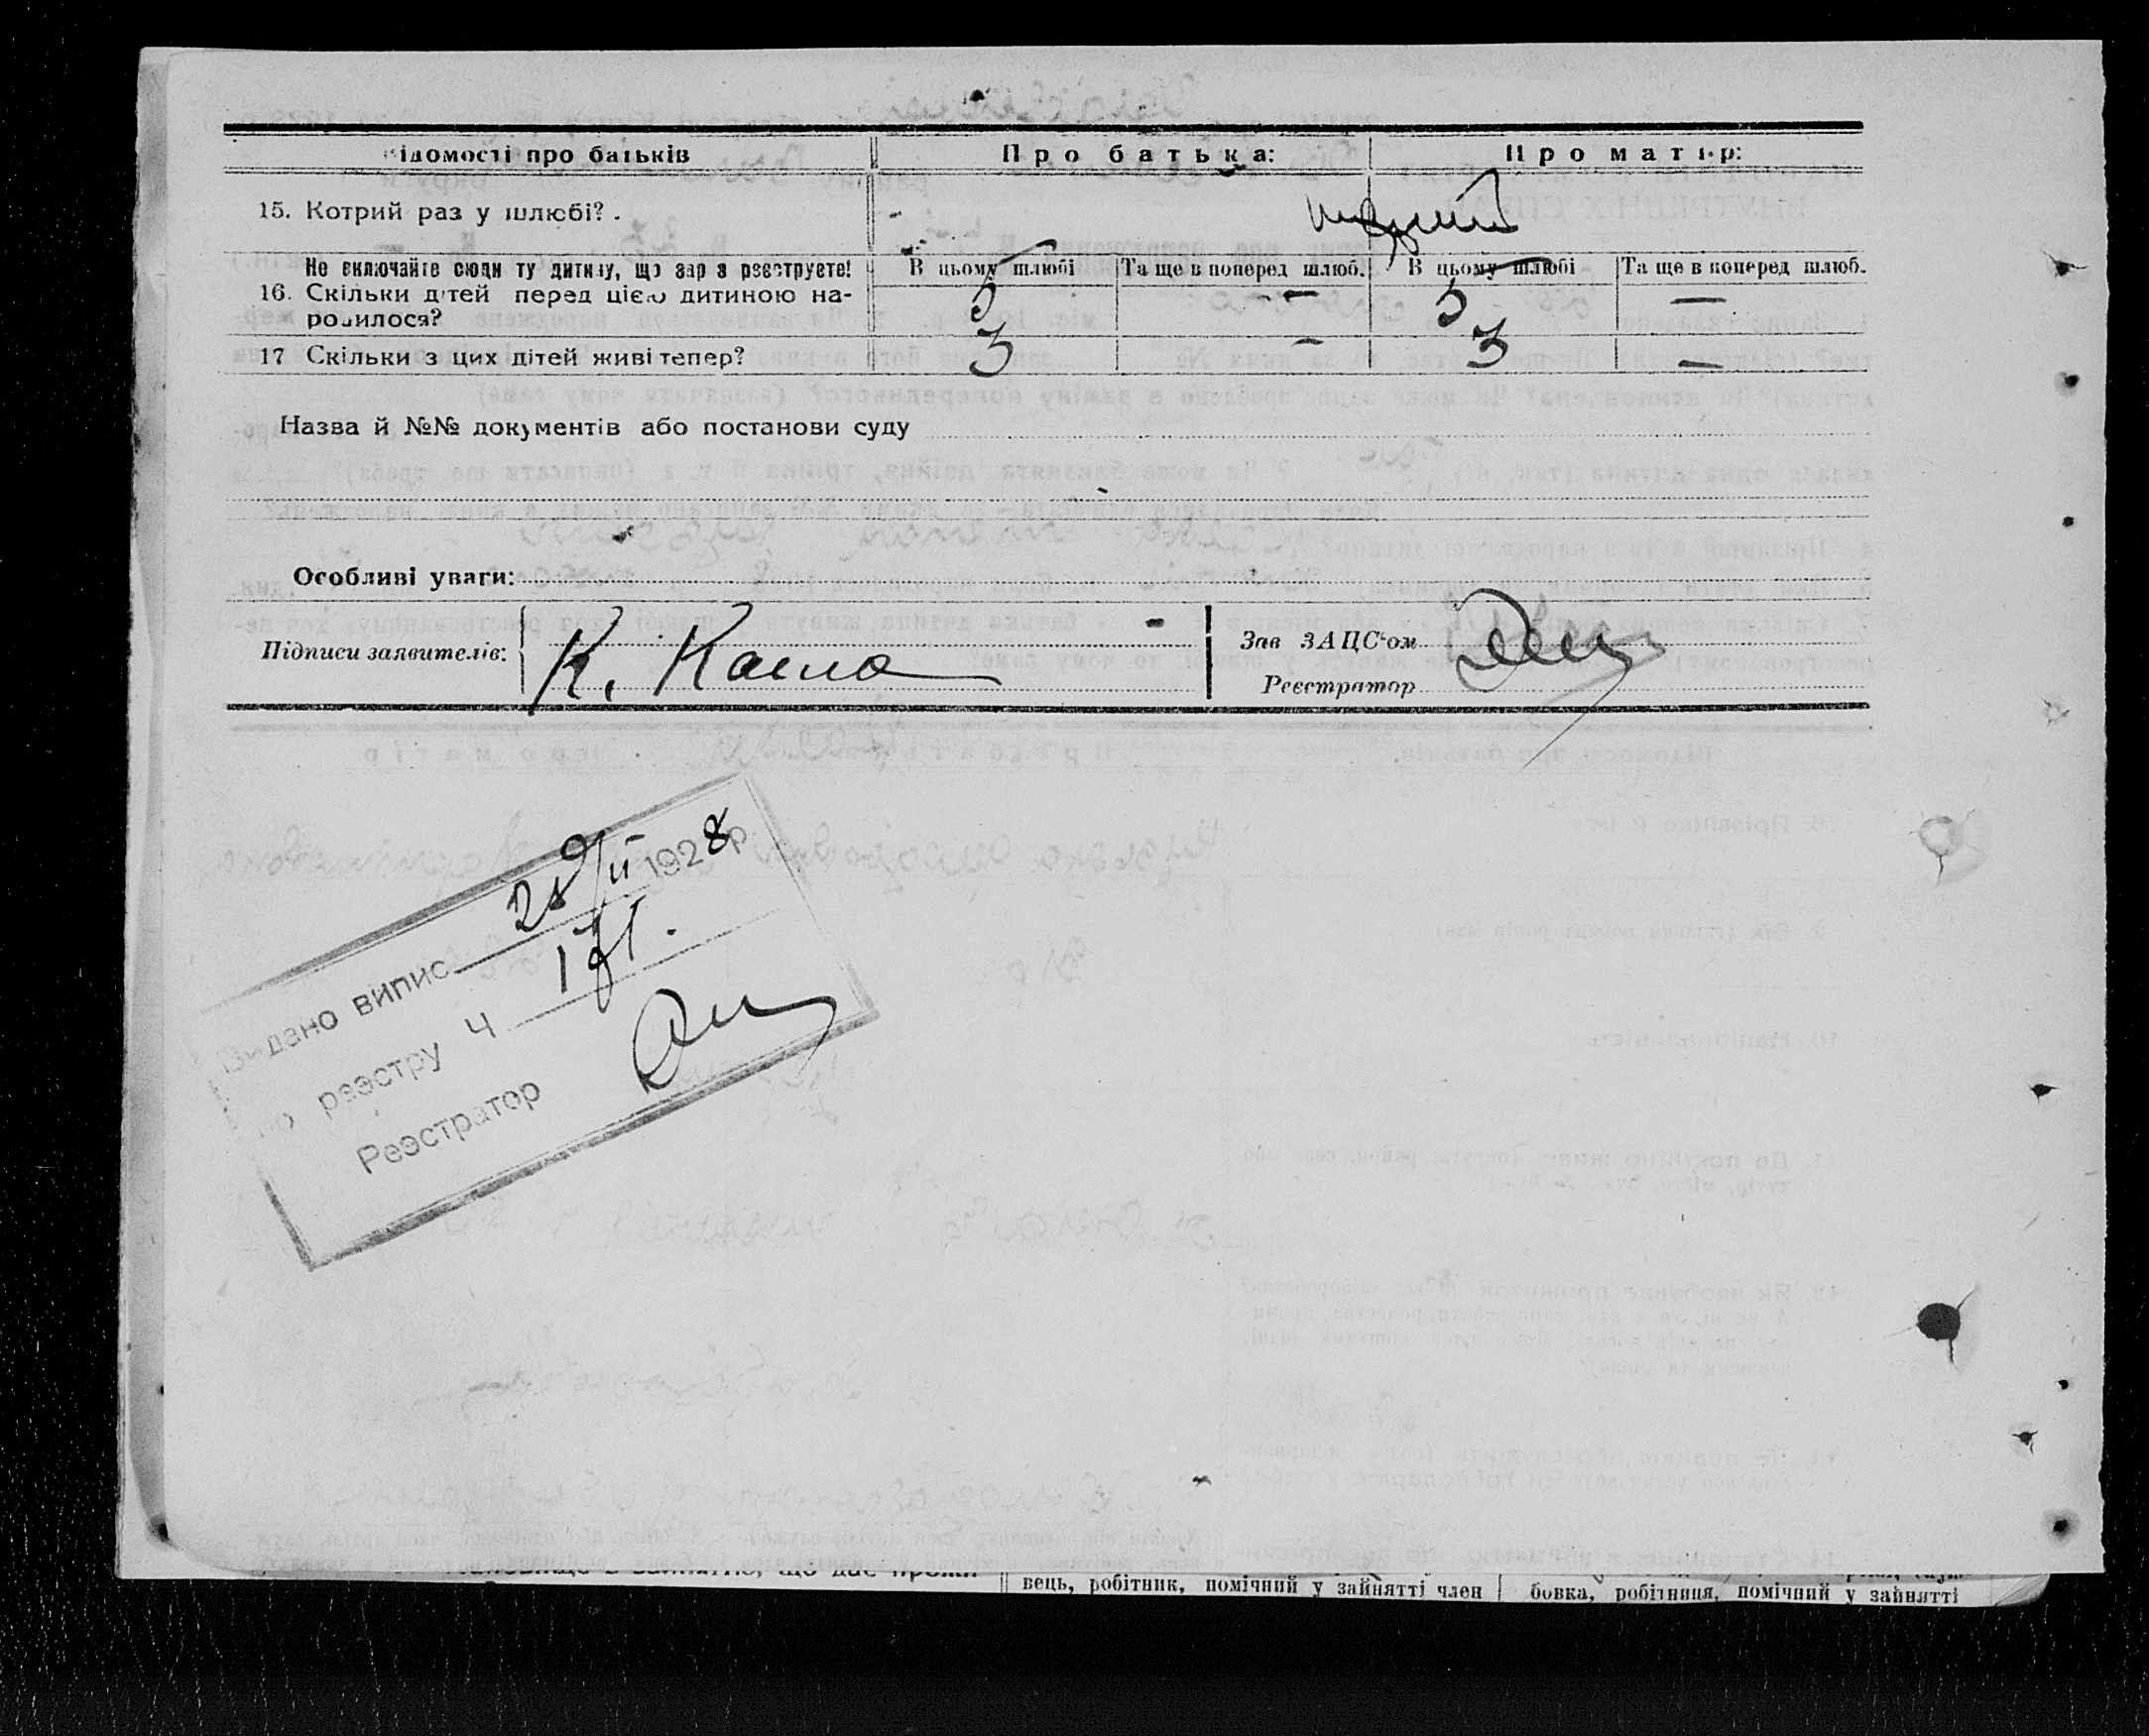 Відомості про батьків Про батька: Про матір:
15. Котрий раз у шлюбі? . - перший
Не включайте сюди ту дитину, що зараз реєструєте! В цьому шлюбі Та ще в поперед шлюб. В цьому шлюбі Та ще в поперед шлюб.
16. Скільки дітей перед цією дитиною на- 5 — 5 —
родилося?
17 Скільки з цих дітей живі тепер? 3 — 3 —
Назва й №№ документів або постанови суду
Особливі уваги:
Підписи заявителів: К. Каша
Зав ЗАЦС'ом
Реєстратор
Видано випис 28/II 1928 р.
по реэстру Ч 171.
Реэстратор
вець, робітник, помічний у зайнятті член
бовка, робітниця, помічний у зайнятті